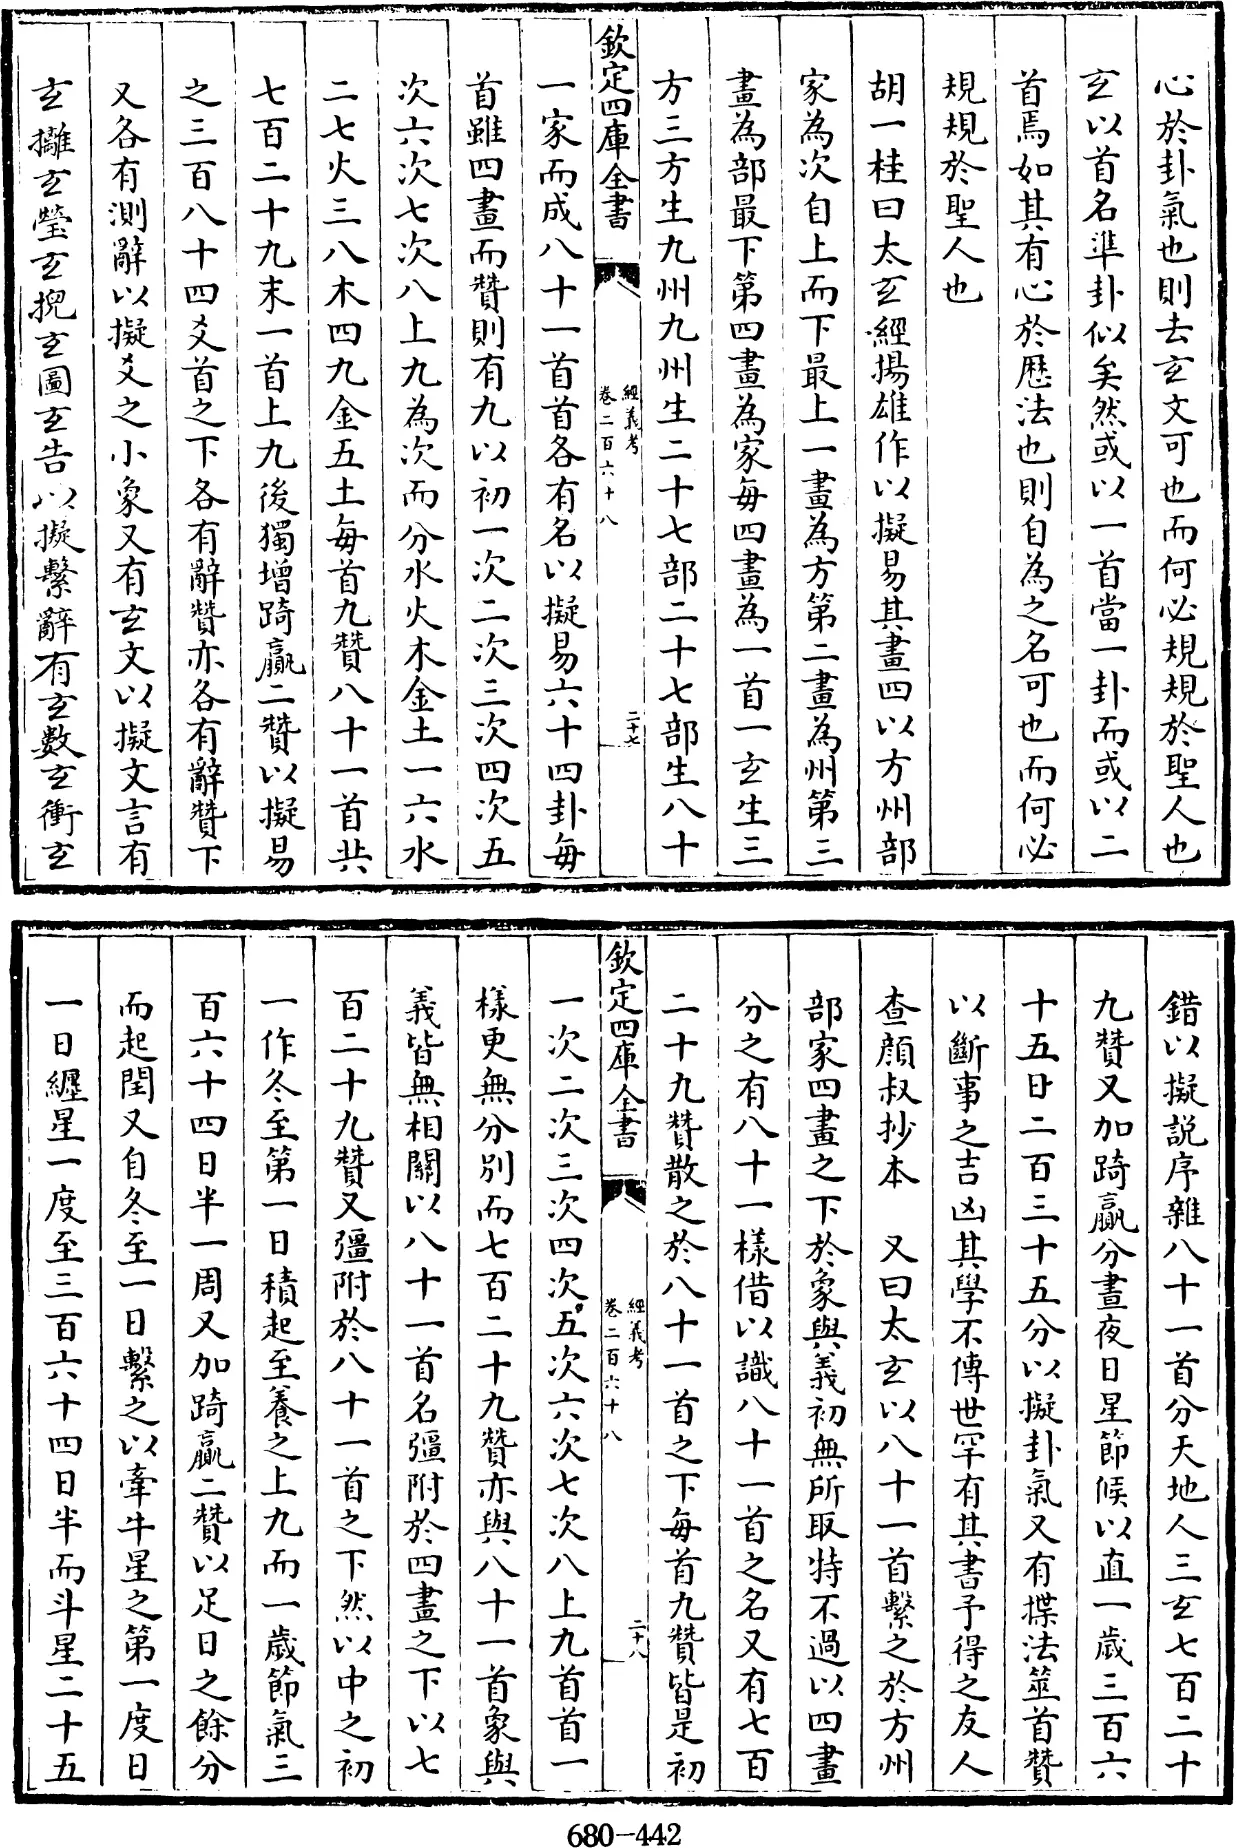 心於卦氣也則去玄文可也而何必規規於聖人也
玄以首名準卦似矣然或以一首當一卦而或以二
首焉如其有心於厯法也則自為之名可也而何必
規規於聖人也
胡一桂曰太玄經揚雄作以擬易其畫四以方州部
家為次自上而下最上一畫為方第二畫為州第三
畫為部最下第四畫為家每四畫為一首一玄生三
方三方生九州九州生二十七部二十七部生八十
欽定四庫全書
經義考
卷二百六十八
二十七
一家而成八十一首首各有名以擬易六十四卦每
首雖四畫而贊則有九以初一次二次三次四次五
次六次七次八上九為次而分水火木金土一六水
二七火三八木四九金五土每首九贊八十一首共
七百二十九末一首上九後獨增踦贏二贊以擬易
之三百八十四爻首之下各有辭贊亦各有辭贊下
又各有測辭以擬爻之小象又有玄文以擬文言有
玄攡玄瑩玄掜玄圖玄告以擬繫辭有玄數玄衝玄
錯以擬説序雜八十一首分天地人三玄七百二十
九贊又加踦贏分晝夜日星節候以直一歲三百六
十五日二百三十五分以擬卦氣又有揲法筮首贊
以斷事之吉凶其學不傳世罕有其書予得之友人
查顔叔抄本　又曰太玄以八十一首繫之於方州
部家四畫之下於象與義初無所取特不過以四畫
分之有八十一樣借以識八十一首之名又有七百
二十九贊散之於八十一首之下每首九贊皆是初
欽定四庫全書
經義考
卷二百六十八
二十八
一次二次三次四次五次六次七次八上九首首一
樣更無分別而七百二十九贊亦與八十一首象與
義皆無相關以八十一首名彊附於四畫之下以七
百二十九贊又彊附於八十一首之下然以中之初
一作冬至第一日積起至養之上九而一歲節氣三
百六十四日半一周又加踦贏二贊以足日之餘分
而起閏又自冬至一日繫之以牽牛星之第一度日
一日纒星一度至三百六十四日半而斗星二十五
680-442